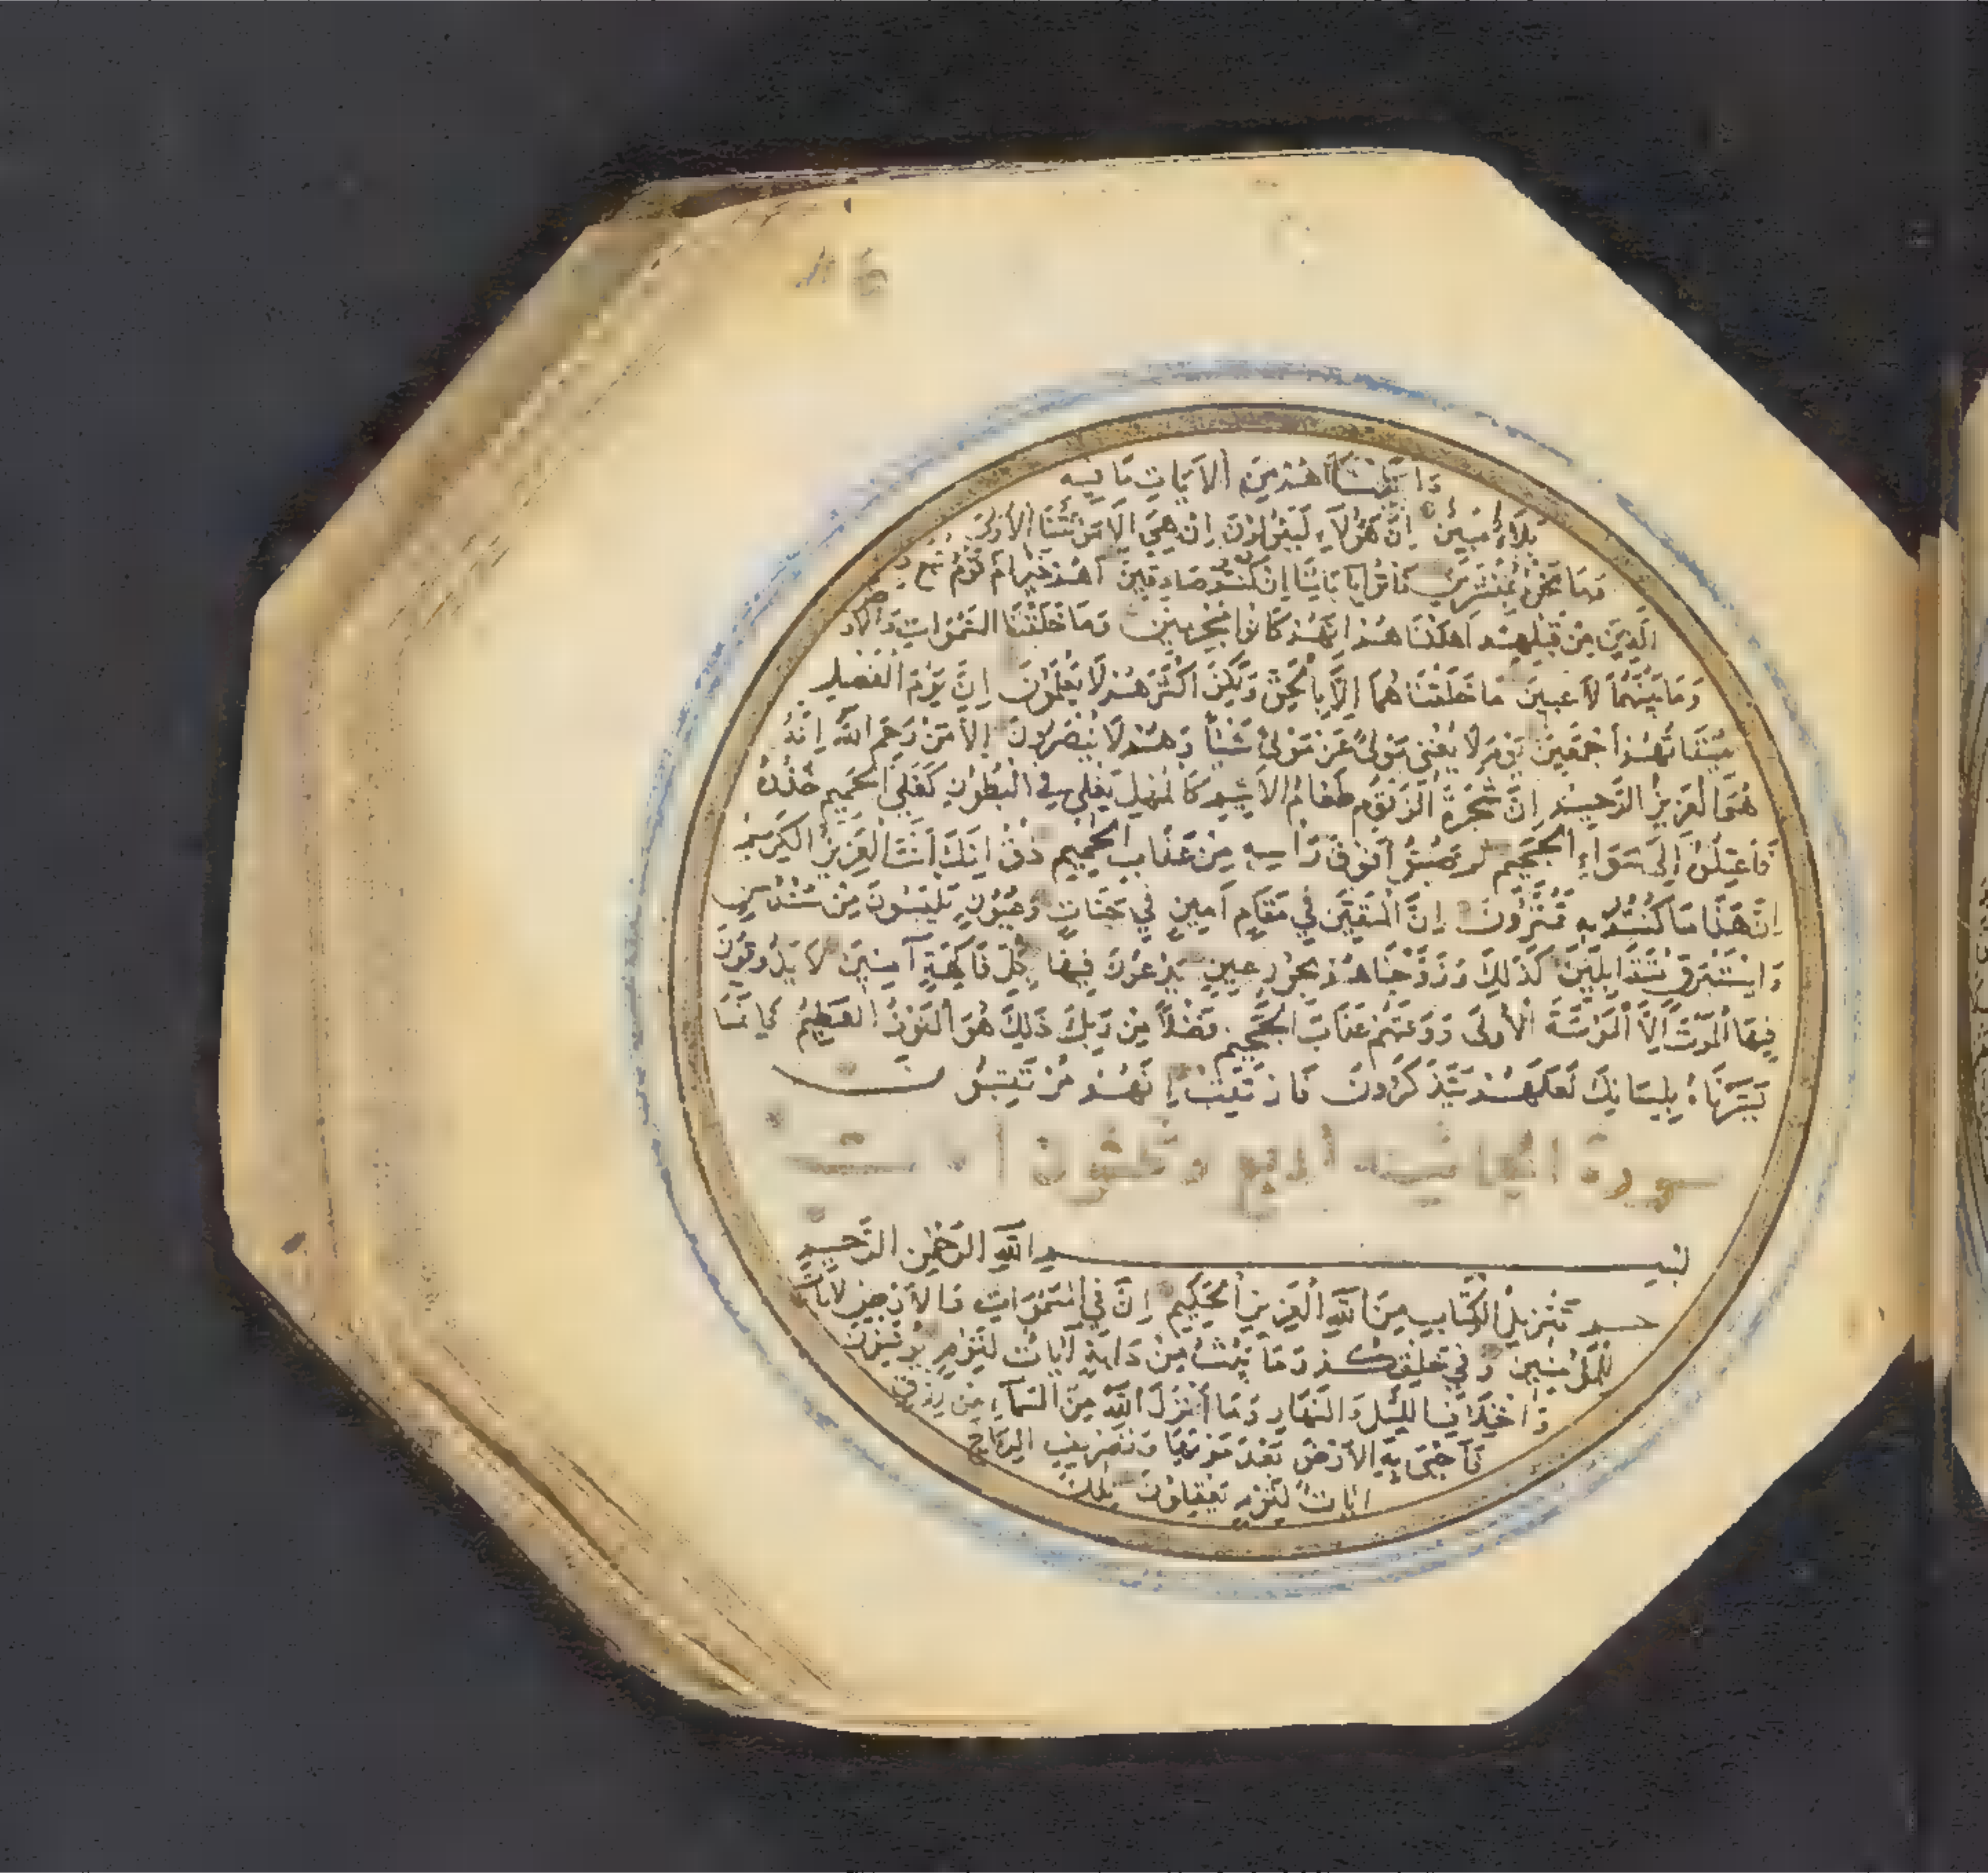 وَاٰتَيْنَاهُمْ مِنَ الْاٰيَاتِ مَا فِيهِ
بَلَاءٌ مُبِينٌ اِنَّ هٰؤُلَاءِ لَيَقُولُونَ اِنْ هِيَ اِلَّا مَوْتَتُنَا الْاُولٰى
وَمَا نَحْنُ بِمُنْشَرِينَ فَاْتُوا بِاٰبَائِنَا اِنْ كُنْتُمْ صَادِقِينَ اَهُمْ خَيْرٌ اَمْ قَوْمُ تُبَّعٍ وَ
الَّذِينَ مِنْ قَبْلِهِمْ اَهْلَكْنَاهُمْ اِنَّهُمْ كَانُوا مُجْرِمِينَ وَمَا خَلَقْنَا السَّمٰوَاتِ وَالْاَرْضَ
وَمَا بَيْنَهُمَا لَاعِبِينَ مَا خَلَقْنَاهُمَا اِلَّا بِالْحَقِّ وَلٰكِنَّ اَكْثَرَهُمْ لَا يَعْلَمُونَ اِنَّ يَوْمَ الْفَصْلِ
مِيقَاتُهُمْ اَجْمَعِينَ يَوْمَ لَا يُغْنِي مَوْلًى عَنْ مَوْلًى شَيْئًا وَلَا هُمْ يُنْصَرُونَ اِلَّا مَنْ رَحِمَ اللّٰهُ اِنَّهُ
هُوَ الْعَزِيزُ الرَّحِيمُ اِنَّ شَجَرَةَ الزَّقُّومِ طَعَامُ الْاَثِيمِ كَالْمُهْلِ يَغْلِي فِي الْبُطُونِ كَغَلْيِ الْحَمِيمِ خُذُوهُ
فَاعْتِلُوهُ اِلٰى سَوَاءِ الْجَحِيمِ ثُمَّ صُبُّوا فَوْقَ رَاْسِهِ مِنْ عَذَابِ الْحَمِيمِ ذُقْ اِنَّكَ اَنْتَ الْعَزِيزُ الْكَرِيمُ
اِنَّ هٰذَا مَا كُنْتُمْ بِهِ تَمْتَرُونَ اِنَّ الْمُتَّقِينَ فِي مَقَامٍ اَمِينٍ فِي جَنَّاتٍ وَعُيُونٍ يَلْبَسُونَ مِنْ سُنْدُسٍ
وَاِسْتَبْرَقٍ مُتَقَابِلِينَ كَذٰلِكَ وَزَوَّجْنَاهُمْ بِحُورٍ عِينٍ يَدْعُونَ فِيهَا بِكُلِّ فَاكِهَةٍ اٰمِنِينَ لَا يَذُوقُونَ
فِيهَا الْمَوْتَ اِلَّا الْمَوْتَةَ الْاُولٰى وَوَقٰيهُمْ عَذَابَ الْجَحِيمِ فَضْلًا مِنْ رَبِّكَ ذٰلِكَ هُوَ الْفَوْزُ الْعَظِيمُ فَاِنَّمَا
يَسَّرْنَاهُ بِلِسَانِكَ لَعَلَّهُمْ يَتَذَكَّرُونَ فَارْتَقِبْ اِنَّهُمْ مُرْتَقِبُونَ
سورة الجاثية اربع وثلثون اية
بِسْمِ اللّٰهِ الرَّحْمٰنِ الرَّحِيمِ
حم تَنْزِيلُ الْكِتَابِ مِنَ اللّٰهِ الْعَزِيزِ الْحَكِيمِ اِنَّ فِي السَّمٰوَاتِ وَالْاَرْضِ لَاٰيَاتٍ
لِلْمُؤْمِنِينَ وَفِي خَلْقِكُمْ وَمَا يَبُثُّ مِنْ دَابَّةٍ اٰيَاتٌ لِقَوْمٍ يُوقِنُونَ
وَاخْتِلَافِ الَّيْلِ وَالنَّهَارِ وَمَا اَنْزَلَ اللّٰهُ مِنَ السَّمَاءِ مِنْ رِزْقٍ
فَاَحْيَا بِهِ الْاَرْضَ بَعْدَ مَوْتِهَا وَتَصْرِيفِ الرِّيَاحِ
اٰيَاتٌ لِقَوْمٍ يَعْقِلُونَ تِلْكَ